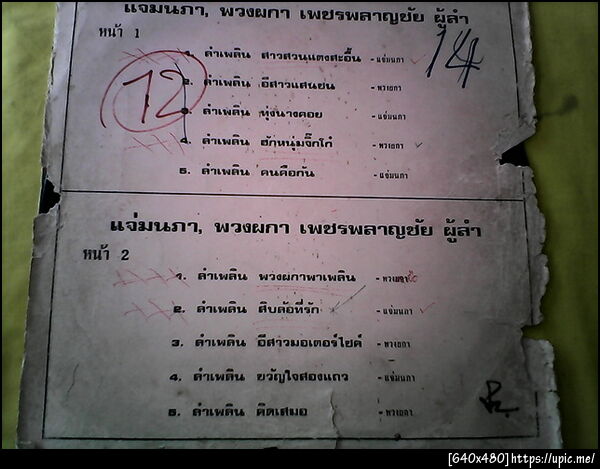 แจ่มนภา, พวงผกา เพชรพลาญชัย ผู้ลำ
หน้า 1
14
12
1. ลำเพลิน สาวสวนแตงสะอื้น - แจ่มนภา
2. ลำเพลิน อีสาวแสนซน - พวงผกา
3. ลำเพลิน ทุ่งนางคอย - แจ่มนภา
4. ลำเพลิน ฮักหนุ่มจิ๊กโก๋ - พวงผกา
5. ลำเพลิน คนคือกัน - แจ่มนภา
แจ่มนภา, พวงผกา เพชรพลาญชัย ผู้ลำ
หน้า 2
1. ลำเพลิน พวงผกาพาเพลิน - พวงผกา
2. ลำเพลิน สิบล้อที่รัก - แจ่มนภา
3. ลำเพลิน อีสาวมอเตอร์ไซค์ - พวงผกา
4. ลำเพลิน ขวัญใจสองแถว - แจ่มนภา
5. ลำเพลิน คิดเสมอ - พวงผกา
[640x480]https://upic.me/